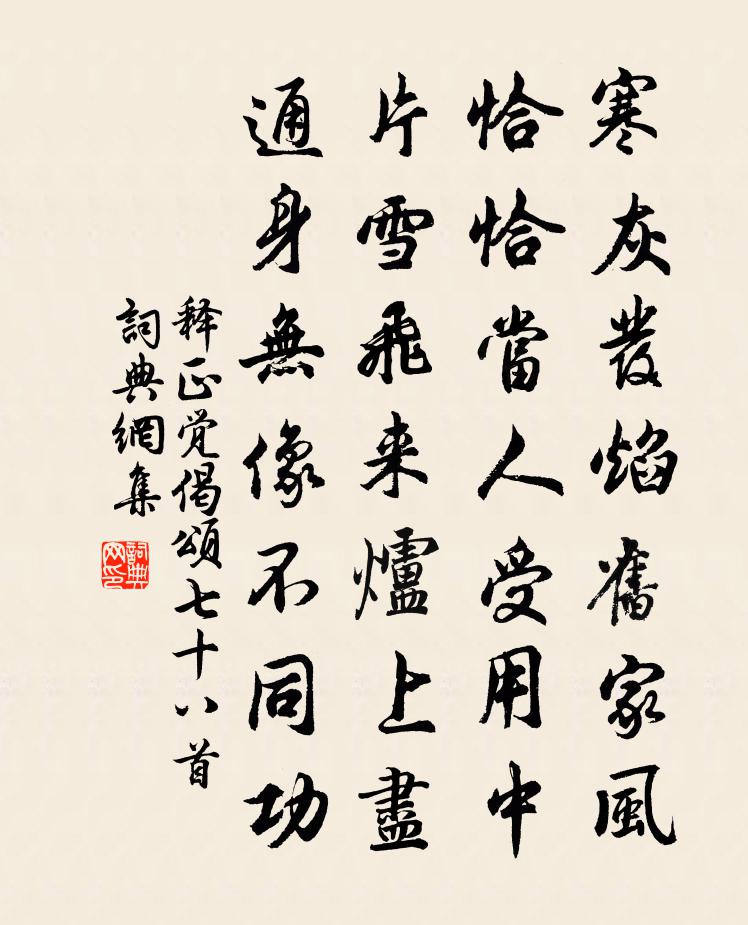 寒灰發焰舊家風
恰恰當人受用中
片雪飛来爐上盡
通身無像不同功
释正觉偈頌七十八首
詞典網集
詞典网印